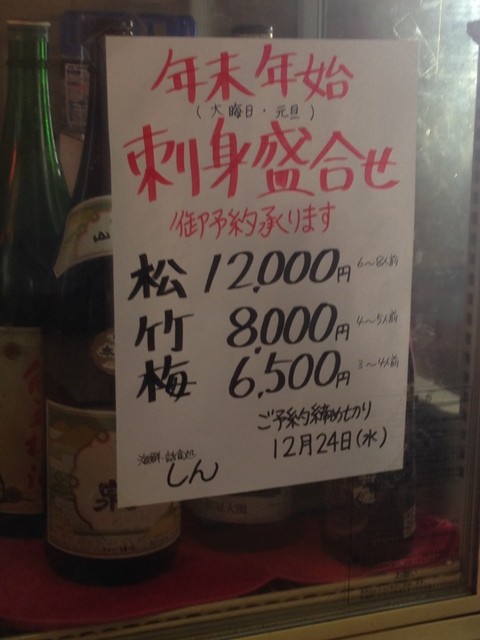 年末年始
(大晦日・元旦)
刺身盛合せ
御予約承ります
松 12,000円 6〜8人前
竹 8,000円 4〜5人前
梅 6,500円 3〜4人前
ご予約締め切り
12月24日(水)
しん